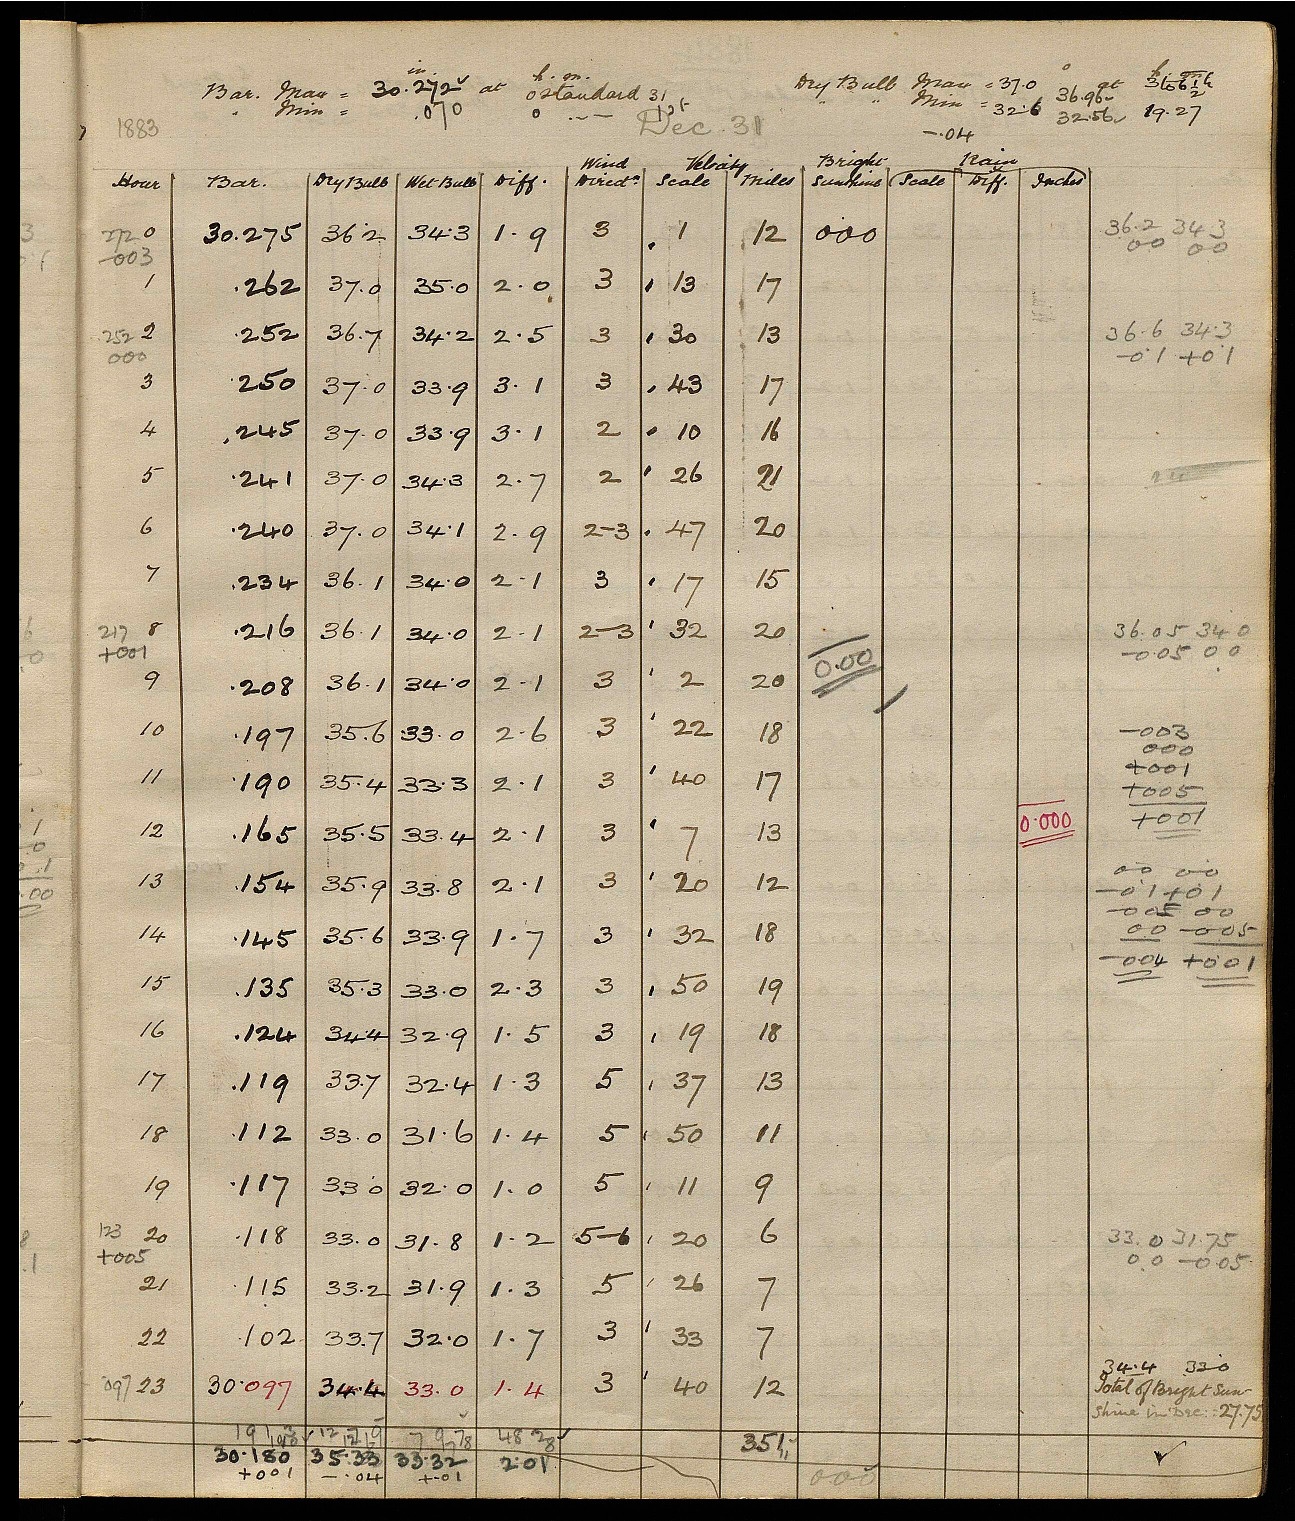 Bar. Max = 30.272 at 0 Standard 31
in. h. m.
" Min = .070 0
Dry Bulb Max = 37.0 36.96 at
" " Min = 32.6 32.56 19.27
-.04
1883 Dec. 31
Wind Velocity Bright Rain
Hour Bar. Dry Bulb Wet Bulb Diff. Directn Scale Miles Sunshine Scale Diff. Inches
272 0 30.275 36.2 34.3 1.9 3 . 1 12 000 36.2 34.3
-003 00 00
1 .262 37.0 35.0 2.0 3 . 13 17
252 2 .252 36.7 34.2 2.5 3 . 30 13 36.6 34.3
000 -0.1 +0.1
3 .250 37.0 33.9 3.1 3 . 43 17
4 .245 37.0 33.9 3.1 2 . 10 16
5 .241 37.0 34.3 2.7 2 . 26 21
6 .240 37.0 34.1 2.9 2-3 . 47 20
7 .234 36.1 34.0 2.1 3 . 17 15
217 8 .216 36.1 34.0 2.1 2-3 ' 32 20 36.05 34.0
+001 0.00 -0.05 0.0
9 .208 36.1 34.0 2.1 3 ' 2 20
10 .197 35.6 33.0 2.6 3 ' 22 18 -003
000
11 .190 35.4 33.3 2.1 3 ' 40 17 +001
+005
12 .165 35.5 33.4 2.1 3 ' 7 13 0.000 +001
00 00
13 .154 35.9 33.8 2.1 3 ' 20 12 -0.1 +0.1
-005 00
14 .145 35.6 33.9 1.7 3 ' 32 18 00 -0.05
-004 +001
15 .135 35.3 33.0 2.3 3 . 50 19
16 .124 34.4 32.9 1.5 3 . 19 18
17 .119 33.7 32.4 1.3 5 . 37 13
18 .112 33.0 31.6 1.4 5 . 50 11
19 .117 33.0 32.0 1.0 5 . 11 9
123 20 .118 33.0 31.8 1.2 5-6 . 20 6 33.0 31.75
+005 0.0 -0.05
21 .115 33.2 31.9 1.3 5 . 26 7
22 .102 33.7 32.0 1.7 3 ' 33 7
34.4 33.0
097 23 30.097 34.4 33.0 1.4 3 ' 40 12 Total of Bright Sun-
shine in Dec. = 27.75
351
30.180 35.33 33.32 2.01
+001 -.04 +.01 000